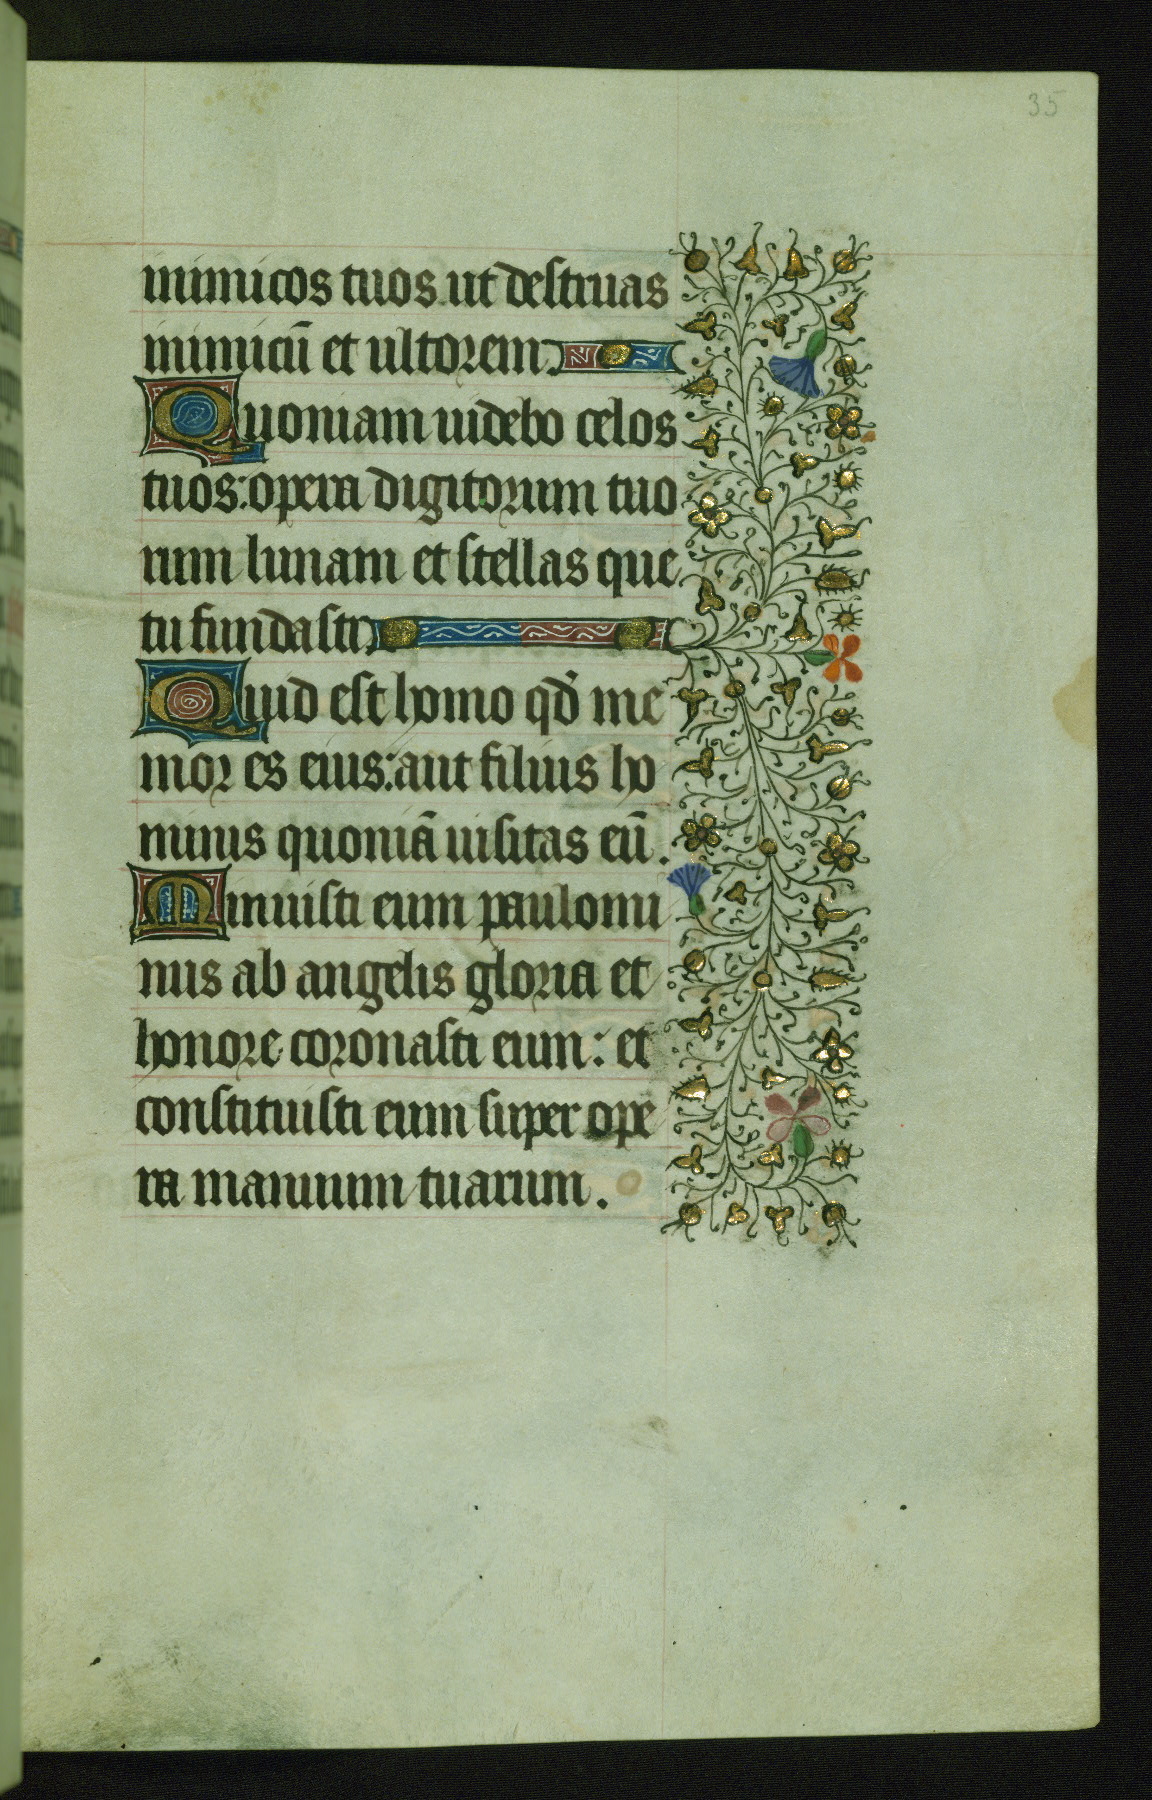 35
inimicos tuos ut destruas
inimicū et ultorem.
Quoniam uidebo celos
tuos: opera digitorum tuo
rum lunam et stellas que
tu fundasti.
Quid est homo qđ me
mor es eius: aut filius ho
minis quoniā uisitas eū.
Minuisti eum paulomi
nus ab angelis gloria et
honore coronasti eum: et
constituisti eum super ope
ra manuum tuarum.